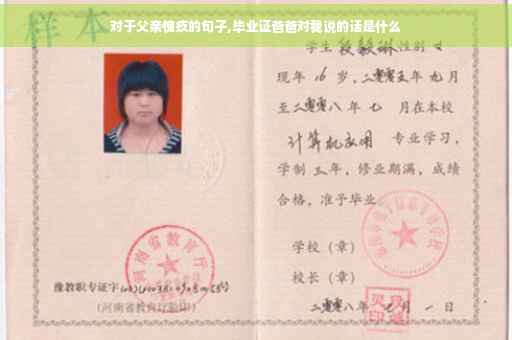 对于父亲愧疚的句子,毕业证爸爸对我说的话是什么
样本
学生 段毅琳 性别 女
现年 16 岁,二零零五年 九月
至二零零八年 七 月在本校
计算机应用 专业学习,
学制 三年,修业期满,成绩
合格,准予毕业
学校(章)
河南省教育厅
校长(章)
豫教职专证字
(河南省教育厅验印)
二零零八年 七月 一日